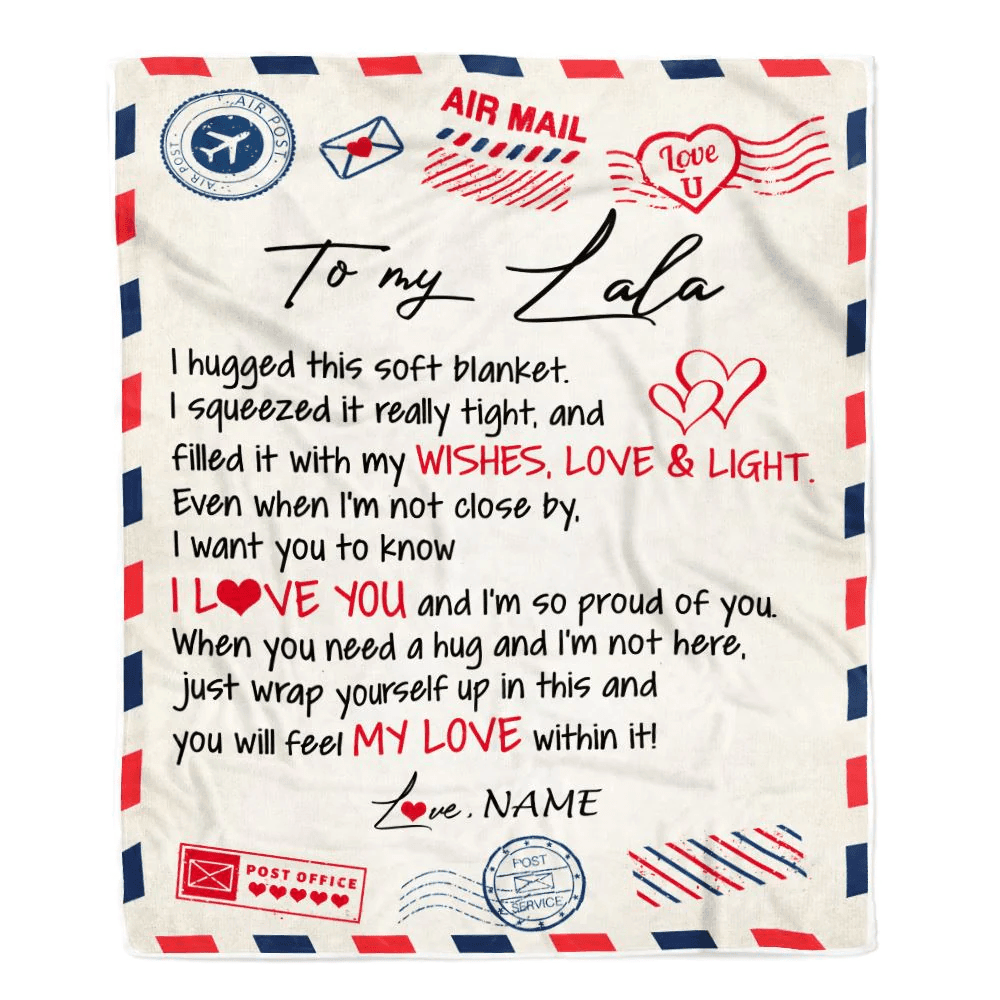 AIR POST
AIR POST
AIR POST
AIR MAIL
Love
U
To my Lala
I hugged this soft blanket.
I squeezed it really tight, and
filled it with my WISHES, LOVE & LIGHT.
Even when I'm not close by,
I want you to know
I L❤VE YOU and I'm so proud of you.
When you need a hug and I'm not here,
just wrap yourself up in this and
you will feel MY LOVE within it!
L❤ve, NAME
POST OFFICE
POST
SERVICE